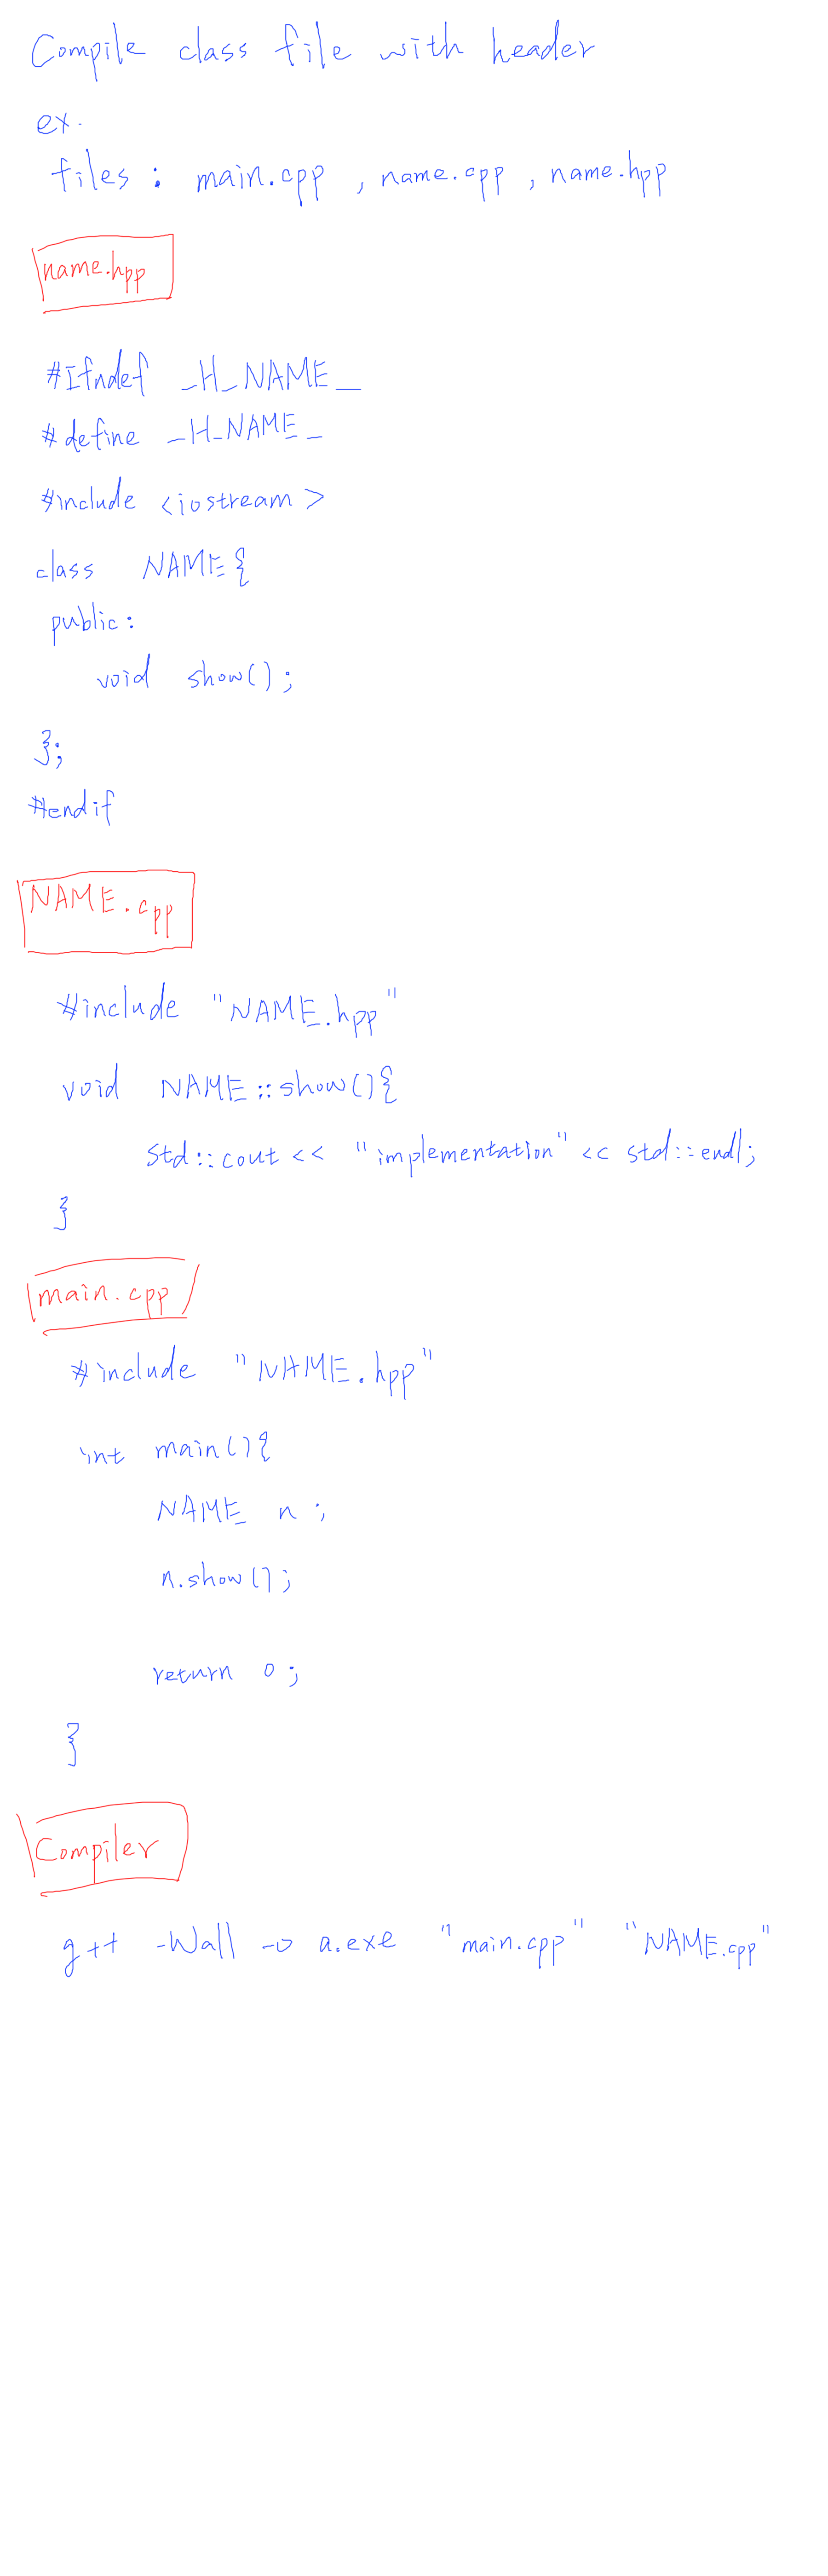 Compile class file with header
ex.
files : main.cpp , name.cpp , name.hpp
name.hpp
#Ifndef _H_NAME_
#define _H_NAME_
#include <iostream>
class NAME{
public:
void show();
};
#endif
NAME.cpp
#include "NAME.hpp"
void NAME::show(){
std::cout << "implementation" << std::endl;
}
main.cpp
#include "NAME.hpp"
int main(){
NAME n ;
n.show();
return 0 ;
}
Compiler
g++ -Wall -o a.exe "main.cpp" "NAME.cpp"